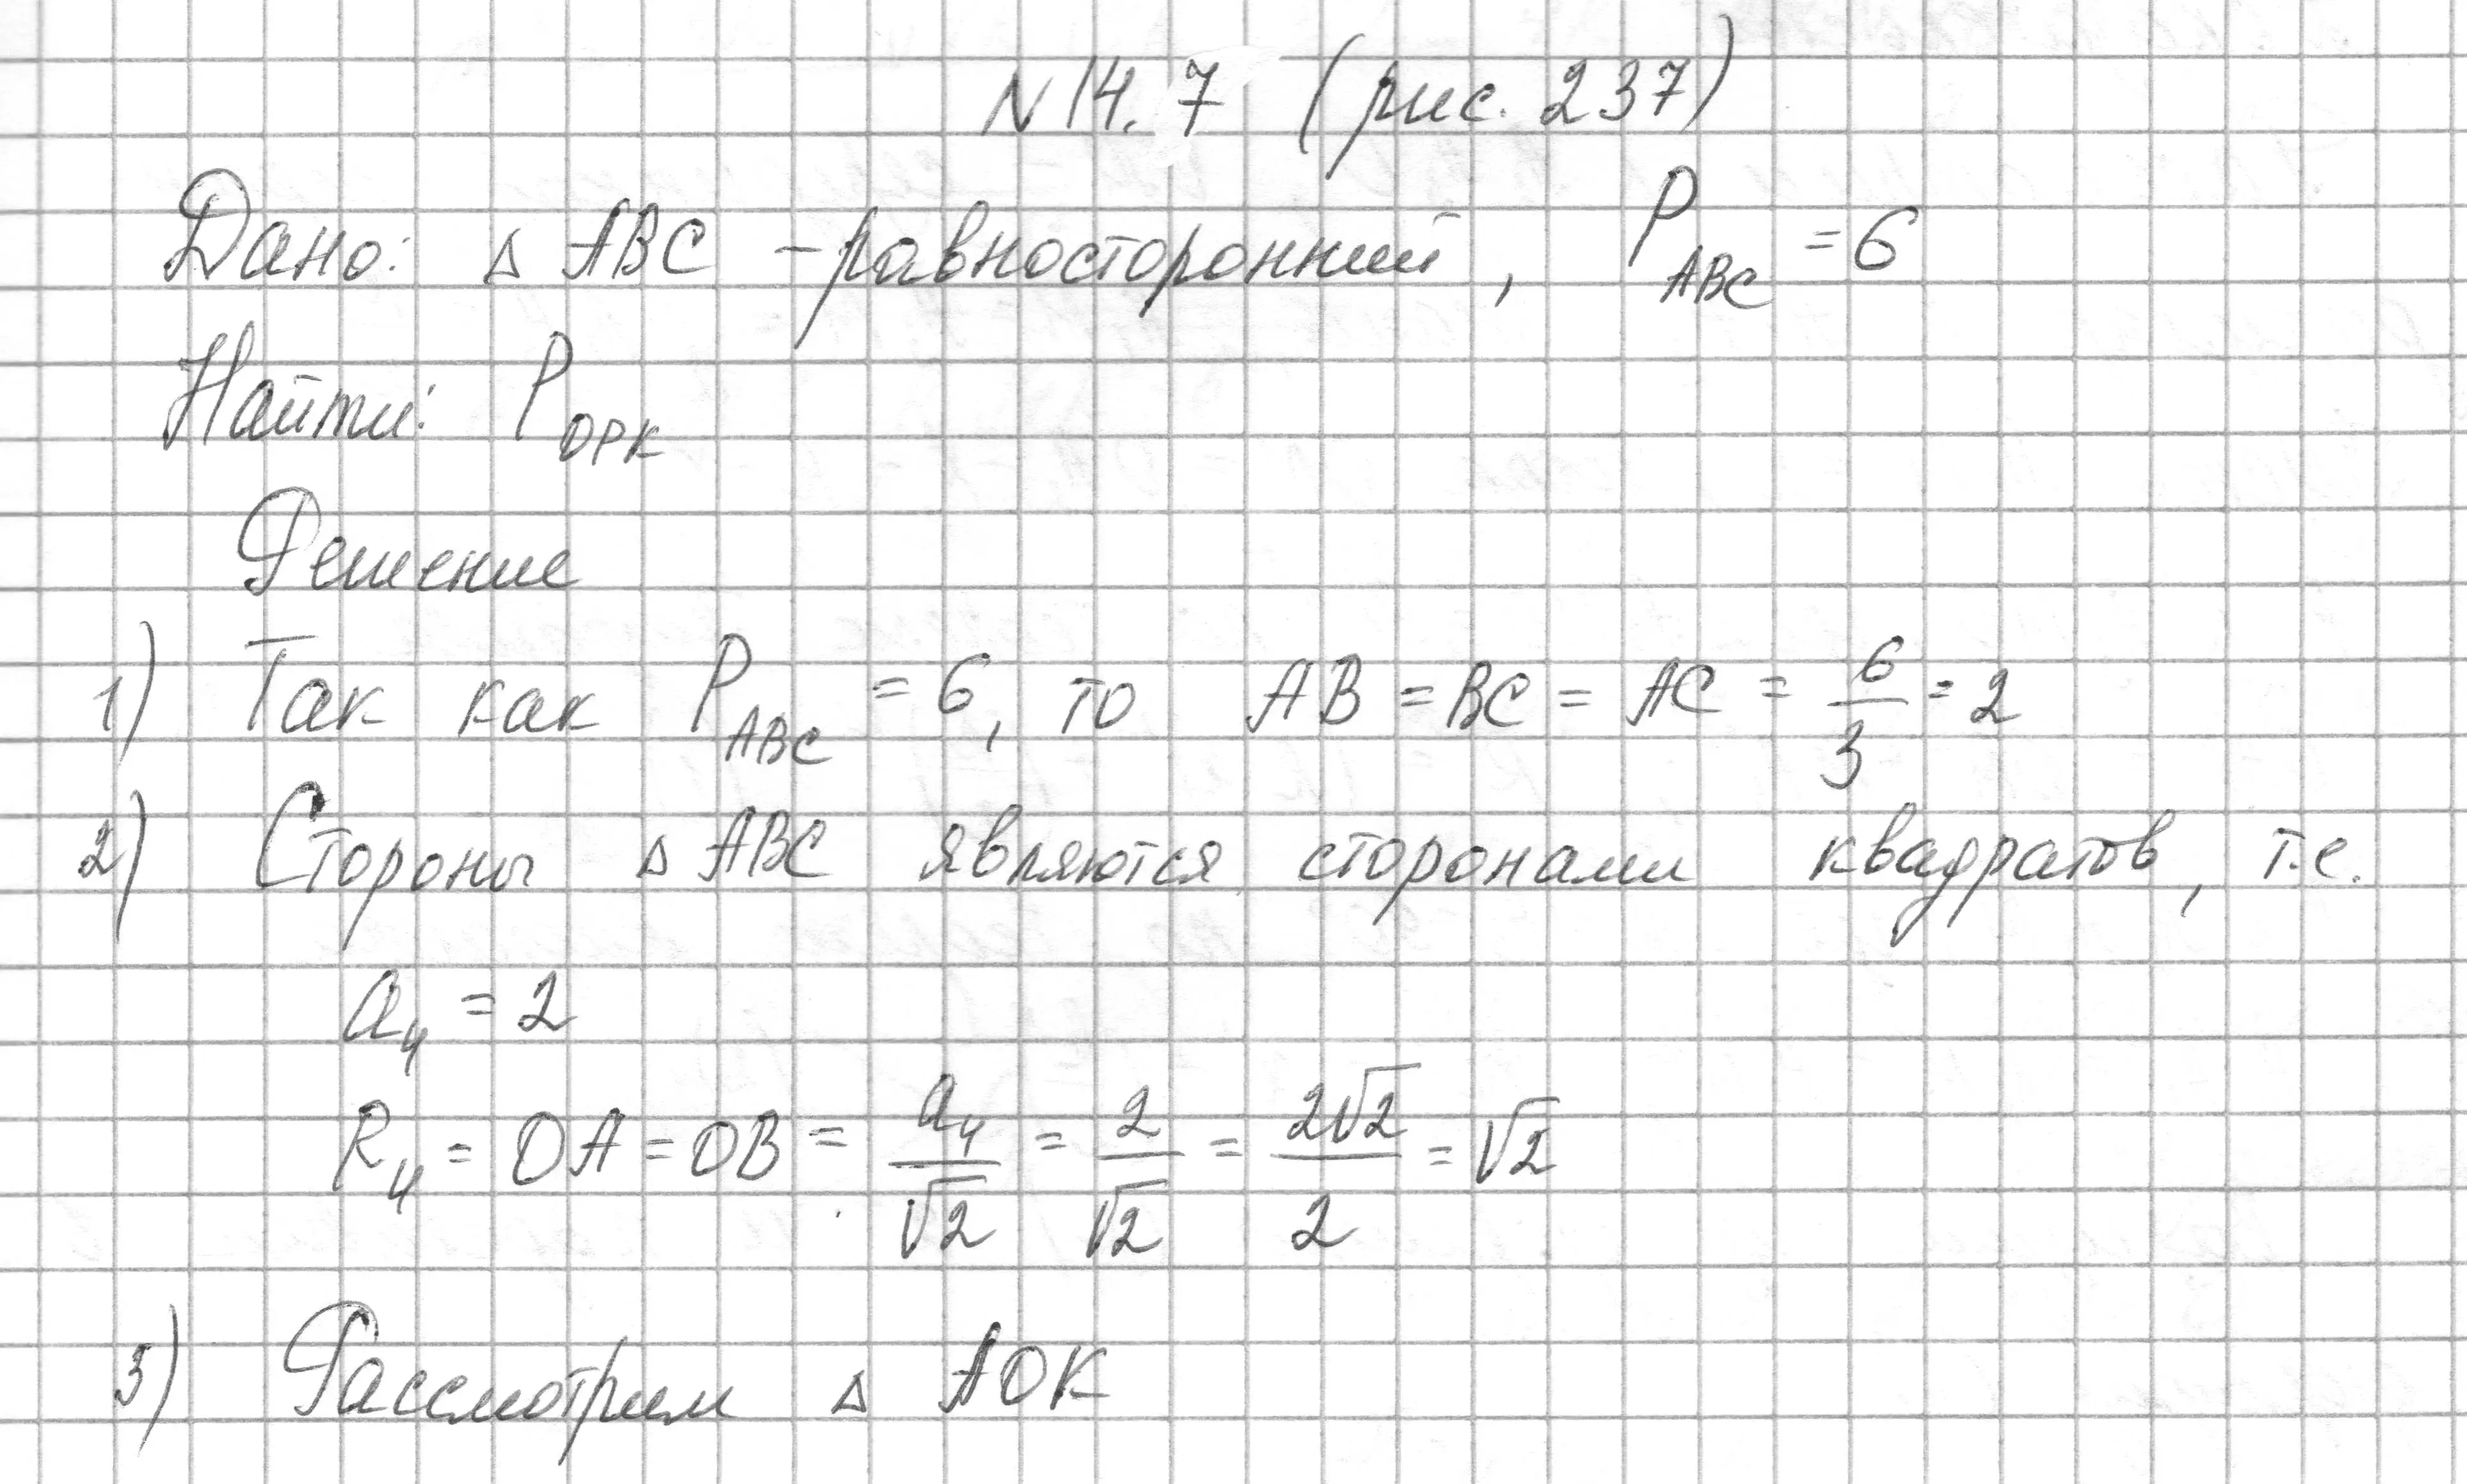 N 14.7 (рис. 237)
Дано: △ ABC - равносторонний, P_ABC = 6
Найти: P_OPK
Решение
1) Так как P_ABC = 6, то AB = BC = AC = 6/3 = 2
2) Стороны △ ABC являются сторонами квадратов, т.е.
a₄ = 2
R₄ = OA = OB = a₄/√2 = 2/√2 = 2√2/2 = √2
3) Рассмотрим △ AOK